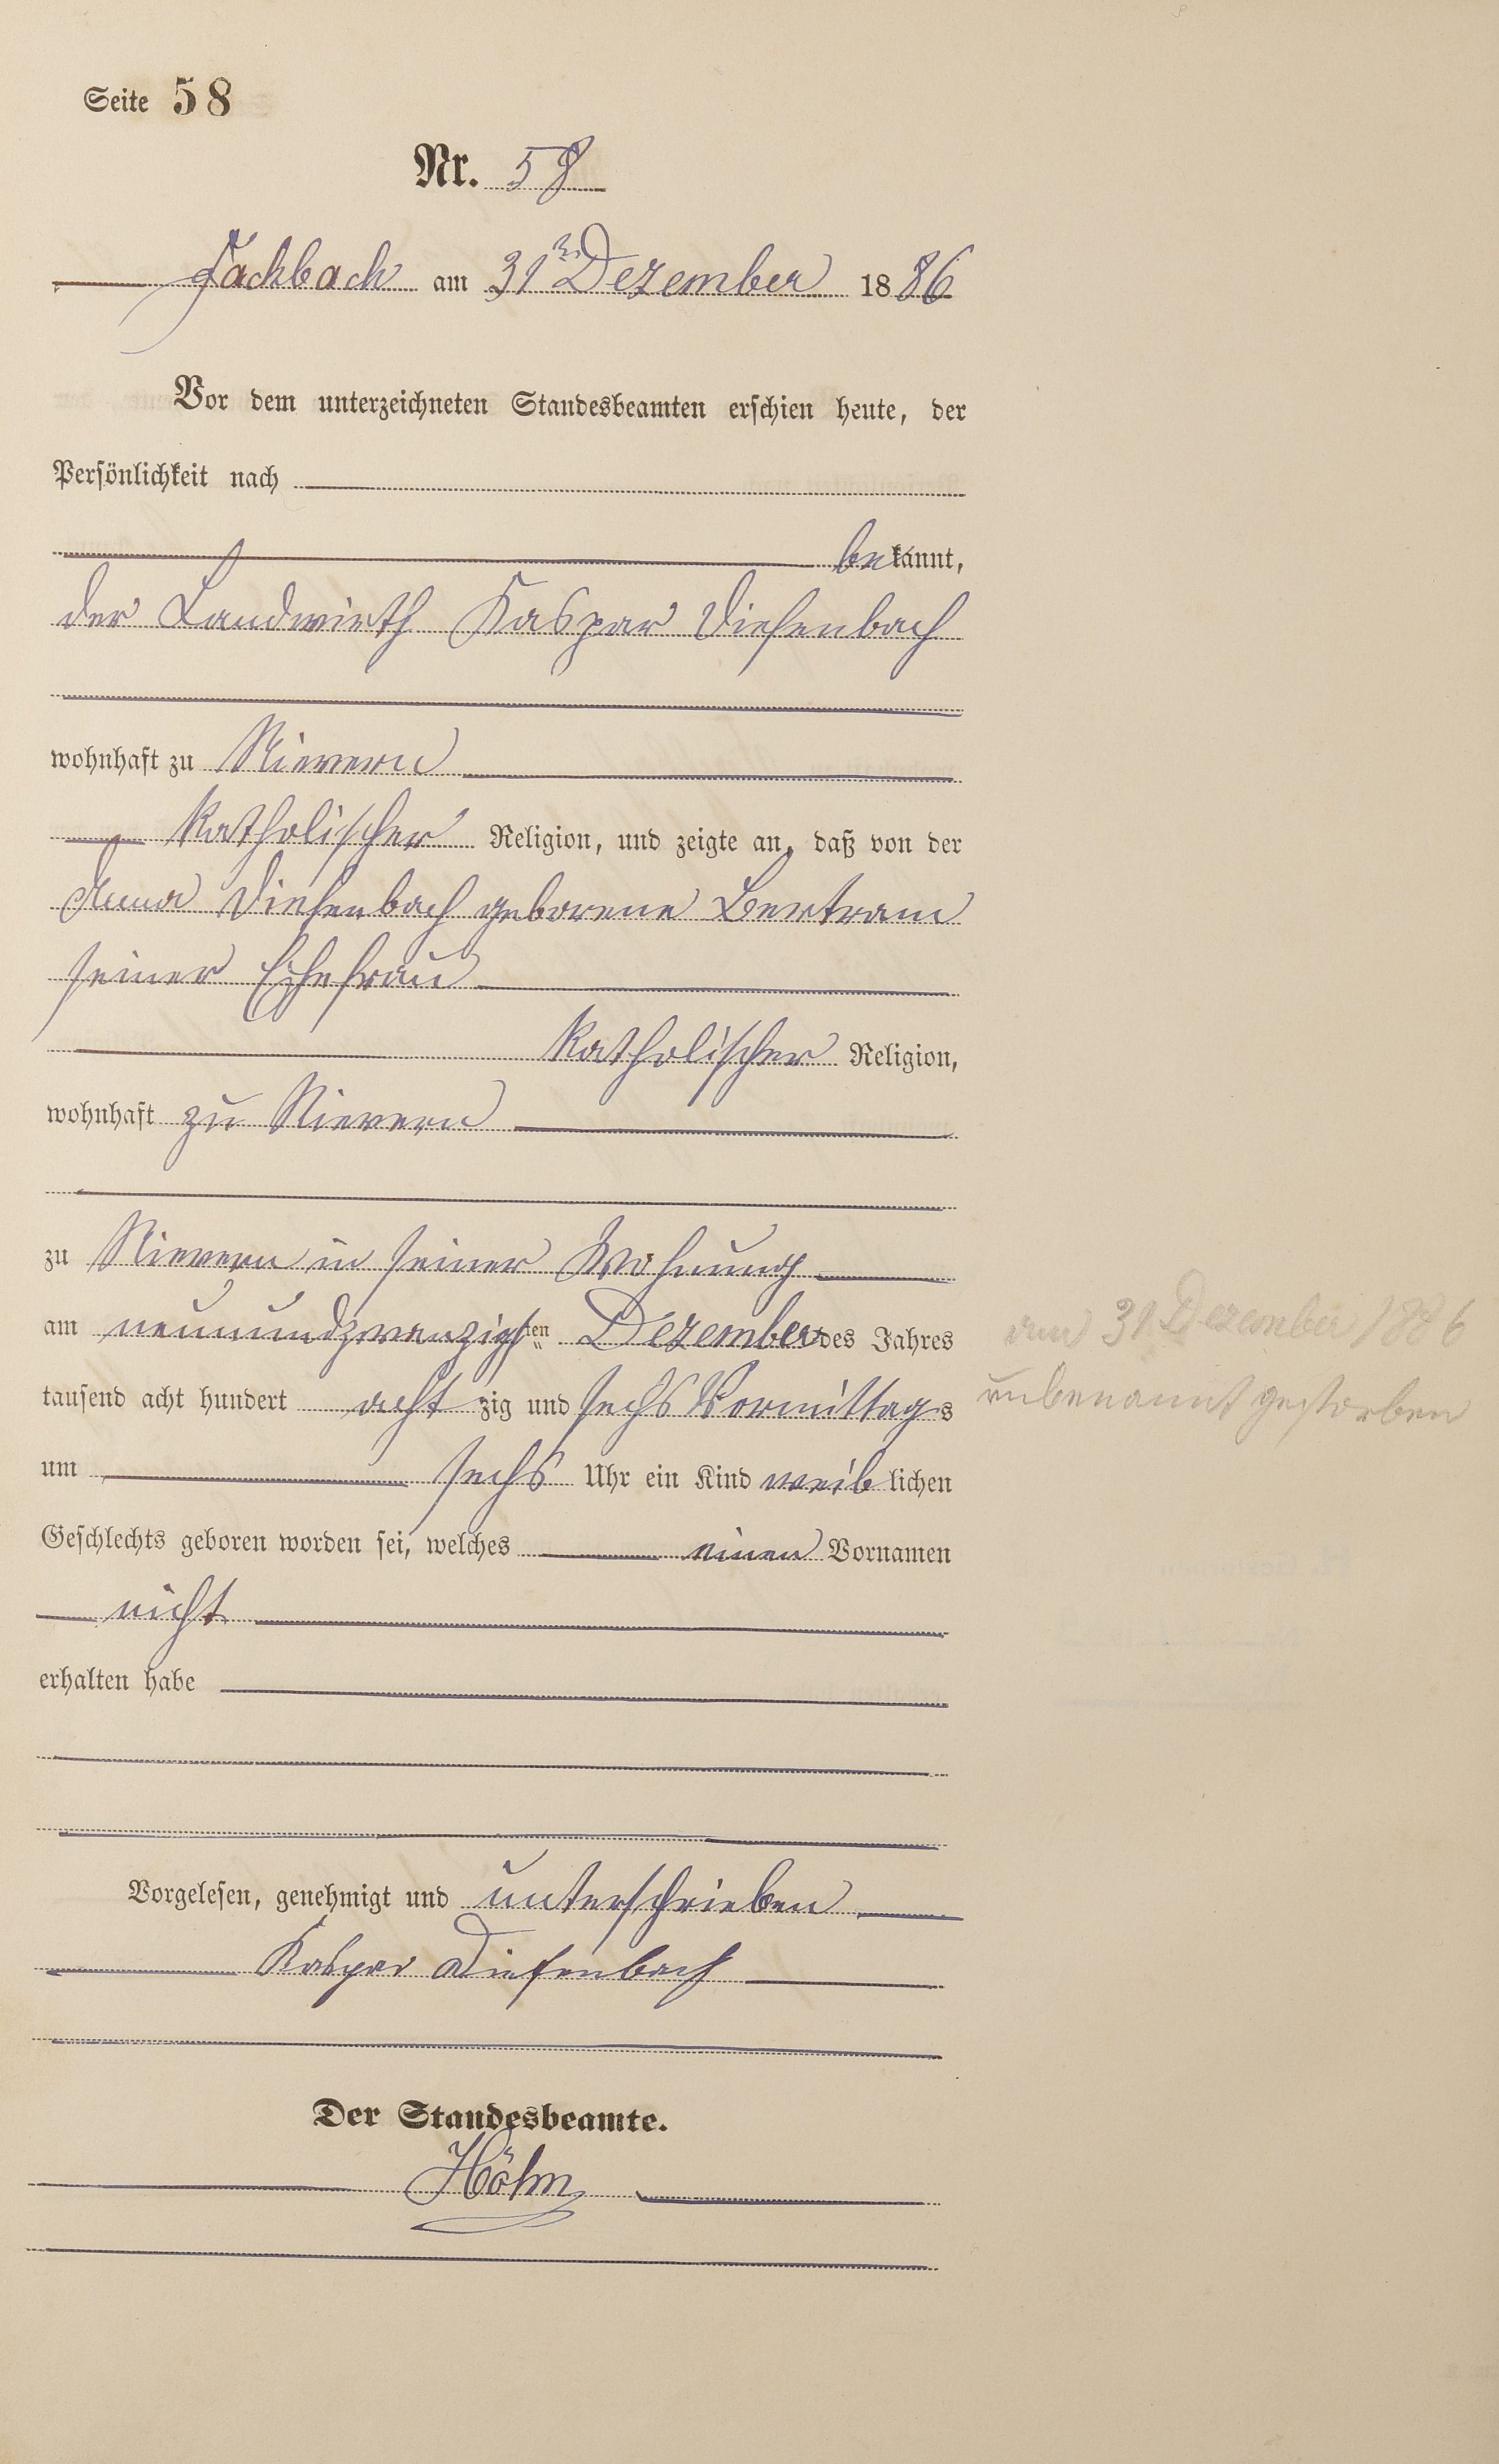 Seite 58
Nr. 58
Fachbach am 31ten Dezember 1886
Vor dem unterzeichneten Standesbeamten erschien heute, der
Persönlichkeit nach
bekannt,
der Landwirth Kaspar Diefenbach
wohnhaft zu Nievern
katholischer Religion, und zeigte an, daß von der
Anna Diefenbach geborene Bertram
seiner Ehefrau
katholischer Religion,
wohnhaft zu Nievern
zu Nievern in seiner Wohnung
am neunundzwanzigsten Dezember des Jahres
tausend acht hundert acht zig und sechs Vormittags
um sechs Uhr ein Kind weiblichen
Geschlechts geboren worden sei, welches einen Vornamen
nicht
erhalten habe
am 31 Dezember 1886
unbenannt gestorben
Vorgelesen, genehmigt und unterschrieben
Kaspar Diefenbach
Der Standesbeamte.
Höhn